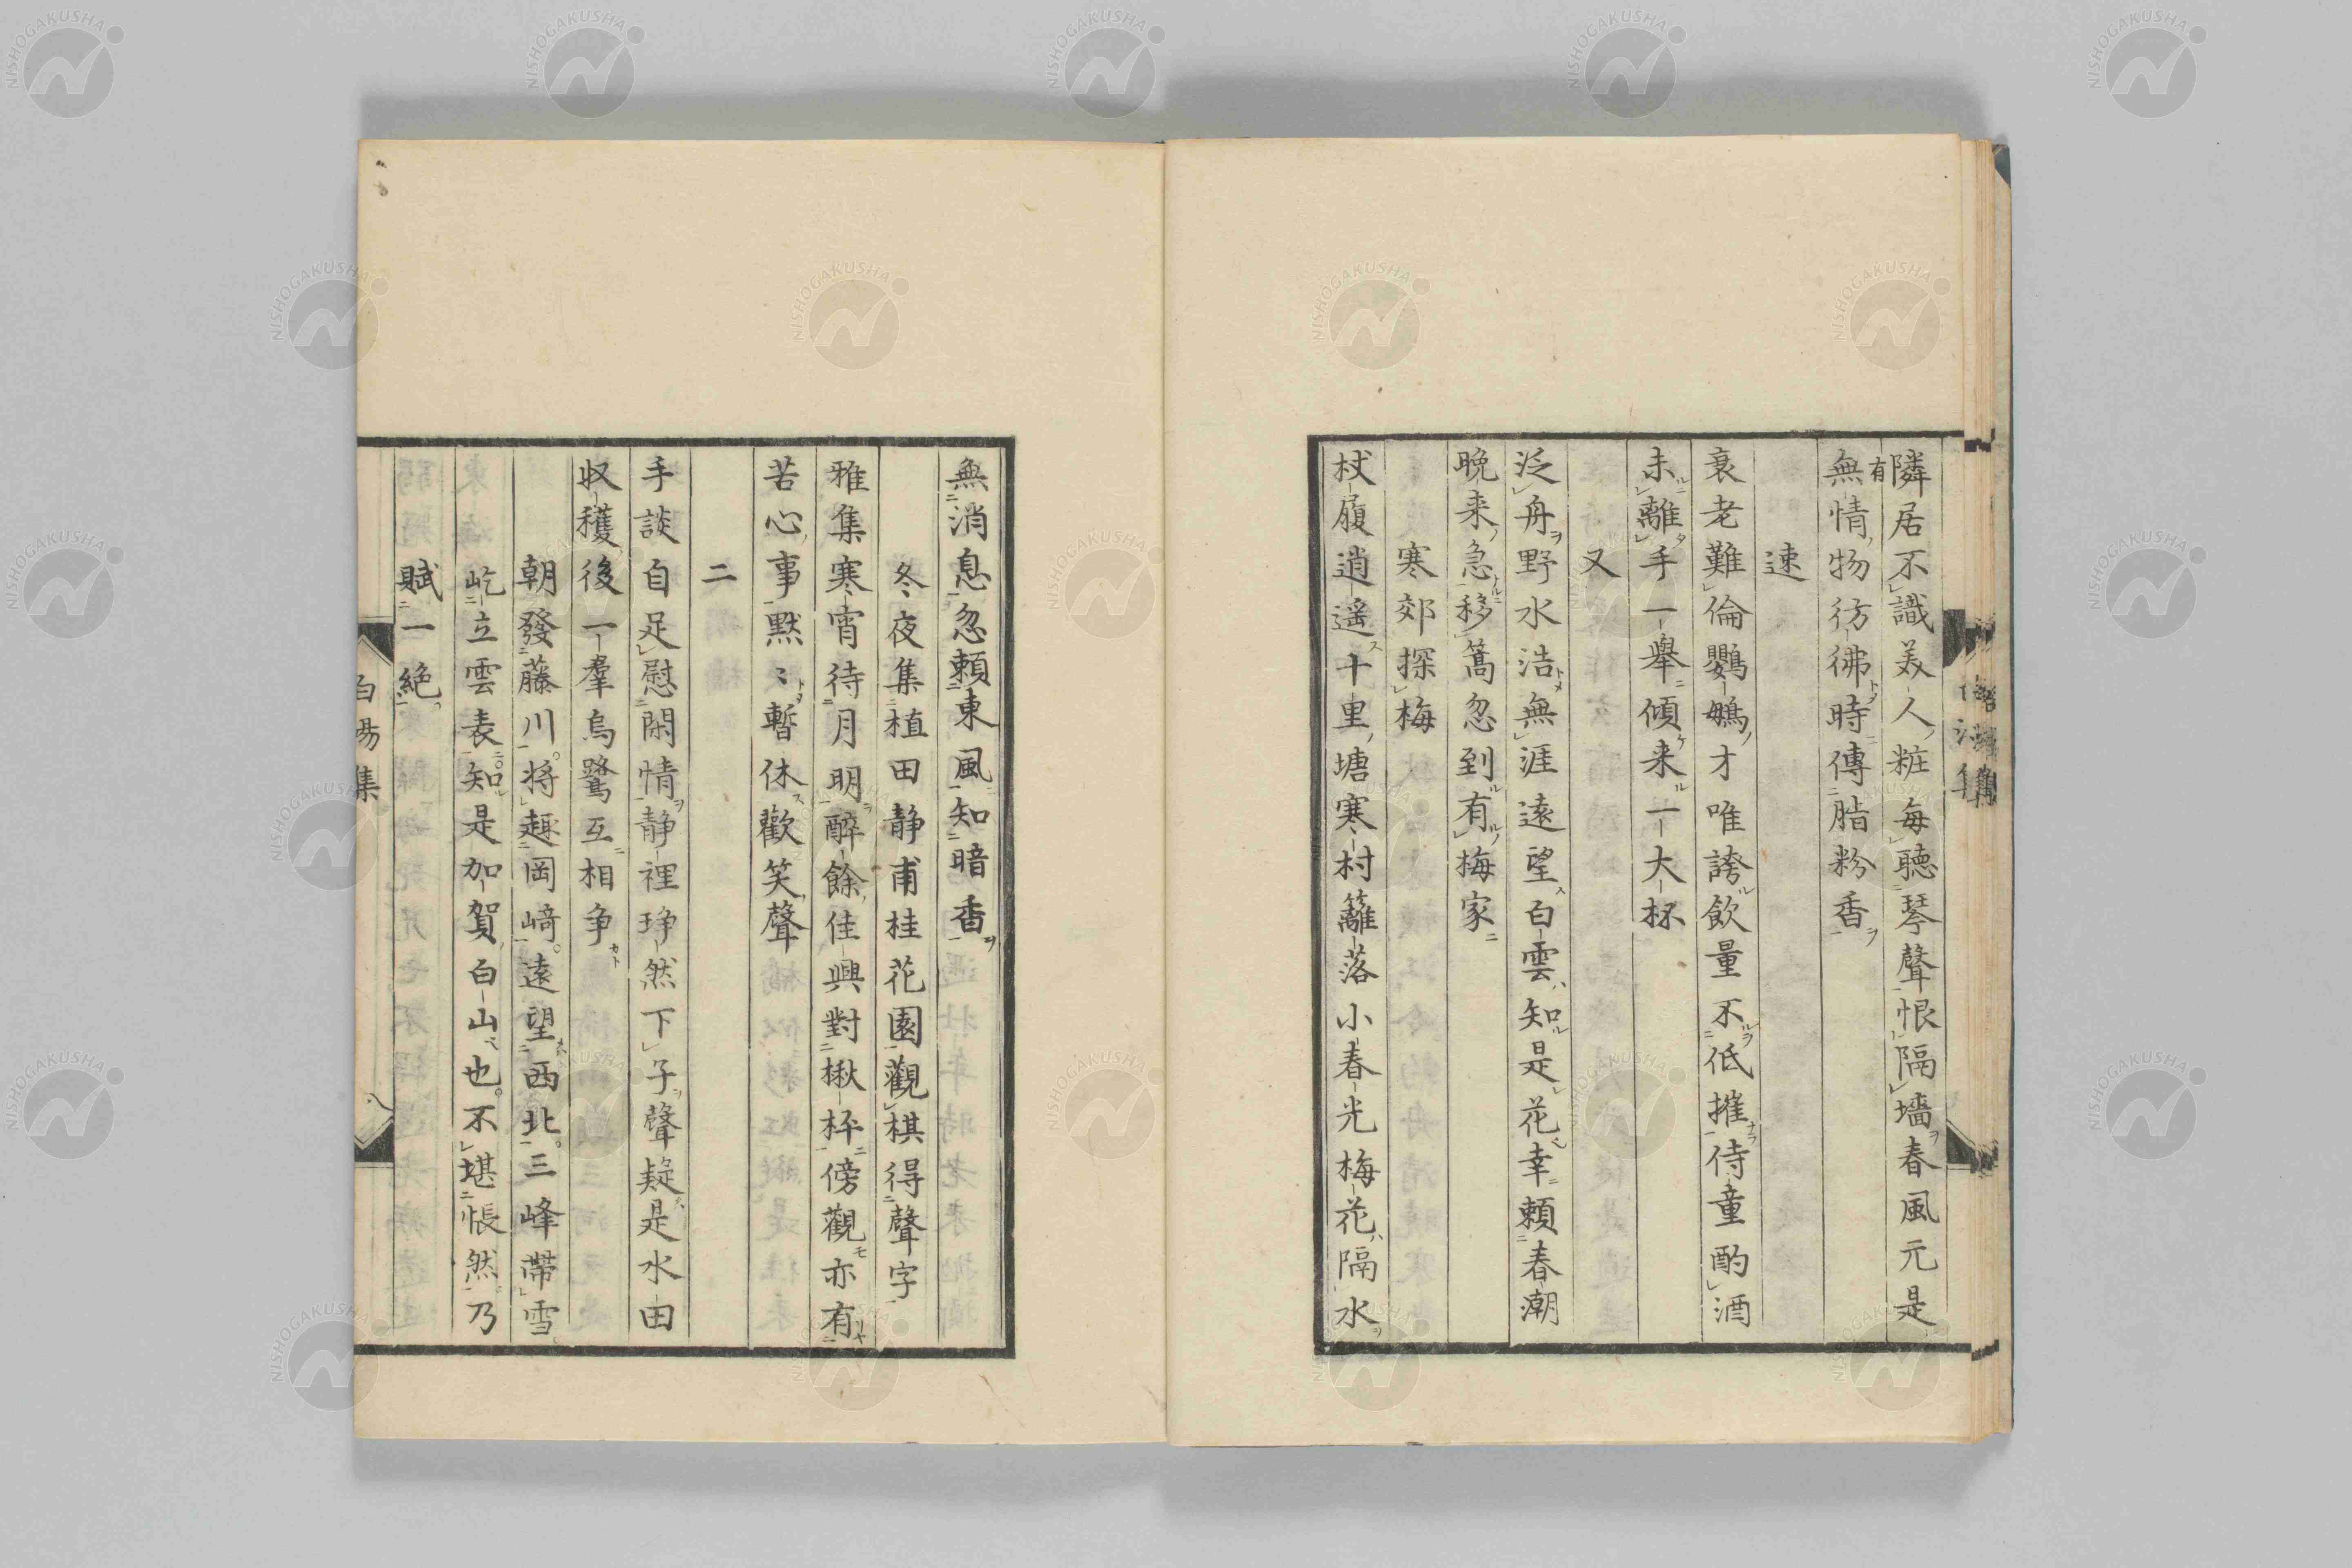 隣居不識美人粧每聽琴聲恨隔墻春風元是
有
無情物彷彿時傳脂粉香
速
衰老難倫鸚鵡才唯誇飲量不低摧侍童酌酒
未離手一舉傾来一大杯
又
泛舟野水浩無涯遠望白雲知是花幸頼春潮
晩来急移篙忽到有梅家
寒郊探梅
杖履逍遥十里塘寒村籬落小春光梅花隔水
無消息忽頼東風知暗香
冬夜集植田静甫桂花園觀棋得聲字
雅集寒宵待月明醉餘佳興對楸枰傍觀亦有
苦心事黙〻暫休歡笑聲
二
手談自足慰閑情静裡琤然下子聲疑是水田
収穫後一羣烏鷺互相争
朝發藤川將趣岡﨑遠望西北三峰帶雪
屹立雲表知是加賀白山也不堪悵然乃
賦一絶
白湯集
八
NISHOGAKUSHA